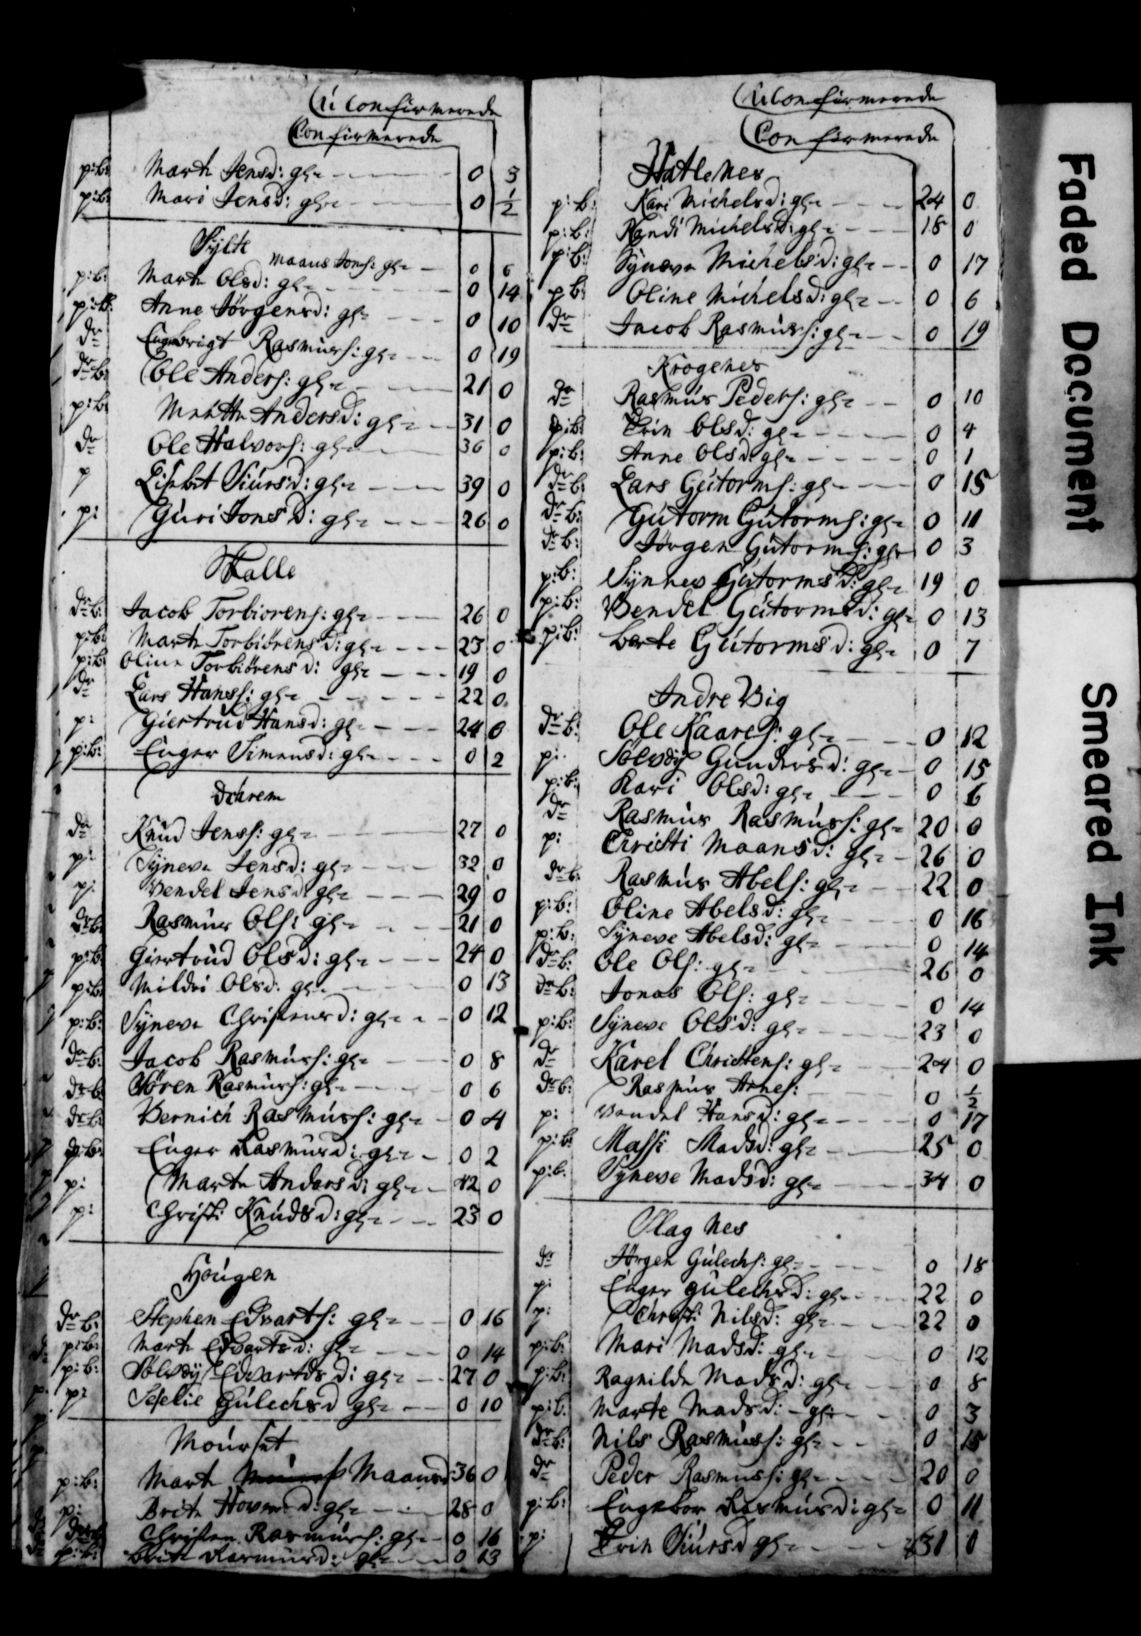 Uconfirmerede
Confirmerede
p:b: Marte Jensd: gl= 0 3
p:b: Mari Jensd: gl= 0 1/2
Sylte
Maans Jons: gl= 0 6
p:b: Marte Olsd: gl= 0 14
p:b: Anne Jørgensd: gl= 0 10
dr Rasmus: gl= 0 19
dr b: Ole Anders: gl= 21 0
p:b: Andersd: gl= 31 0
dr Ole Halvors: gl= 36 0
p Lisebet Siursd: gl= 39 0
p: Guri Jonsd: gl= 26 0
Walle
dr b: Jacob Torbiørens: gl= 26 0
p:b: Marte Torbiørensd: gl= 23 0
p:b: Oline Torbiørensd: gl= 19 0
dr Lars Hans: gl= 22 0
p: Giertrud Hansd: gl= 24 0
p:b: Enger Simensd: gl= 0 2
Døhrem
dr Knud Jens: gl= 27 0
p: Syneve Jensd: gl= 32 0
p: Vendel Jensd gl= 29 0
dr b: Rasmus Ols: gl= 21 0
p:b: Giertrud Olsd: gl= 24 0
p:b: Mildri Olsd: gl= 0 13
p:b: Syneve Christensd: gl= 0 12
dr b: Jacob Rasmus: gl= 0 8
dr b: Søren Rasmus: gl= 0 6
dr b: Bernich Rasmus: gl= 0 4
p:b: Enger Rasmusd: gl= 0 2
p: Marte Andersd: gl= 42 0
p: Christi Knudsd: gl= 23 0
Hougen
dr b: Stephen Edvarts: gl= 0 16
p:b: Marte Edvartsd: gl= 0 14
p:b: Solvøy Edvartsd: gl= 27 0
p: Seselie Gulechsd gl= 0 10
Mourset
p:b: Marte Maansd 36 0
p: Brite d: gl= 28 0
Christen Rasmus: gl= 0 16
p:b: Brite Rasmusd: gl= 0 13
Uconfirmerede
Confirmerede
Hatlenes
p:b: Kari Michelsd: gl= 24 0
p:b: Randi Michelsd: gl= 18 0
p:b: Syneve Michelsd: gl= 0 17
p:b: Oline Michelsd: gl= 0 6
dr Jacob Rasmus: gl= 0 19
Krogenes
dr Rasmus Peders: gl= 0 10
p:b: Olsd: gl= 0 4
p:b: Anne Olsd: gl= 0 1
dr b: Lars Gutorms: gl= 0 15
dr b: Gutorm Gutorms: gl= 0 11
dr b: Jørgen Gutorms: gl= 0 3
p:b: Synnev Gutormsd: gl= 19 0
p:b: Vendel Gutormsd: gl= 0 13
p:b: Berte Gutormsd: gl= 0 7
Indre Vig
dr b: Ole Kaares: gl= 0 12
p: Solvøy Gundersd: gl= 0 15
p:b: Kari Olsd: gl= 0 6
dr Rasmus Rasmus: gl= 20 0
p: Christi Maansd: gl= 26 0
dr b: Rasmus Abels: gl= 22 0
p:b: Oline Abelsd: gl= 0 16
p:b: Syneve Abelsd: gl= 0 14
dr b: Ole Ols: gl= 26 0
dr b: Jonas Ols: gl= 0 14
p:b: Syneve Olsd: gl= 23 0
dr Karel Christens: gl= 24 0
dr b: Rasmus Arnes: 0 1/2
p: Vendel Hansd: gl= 0 17
p:b: Massi Madsd: gl= 25 0
p:b: Syneve Madsd: gl= 34 0
Olagnes
dr Jørgen Gulechs: gl= 0 18
p: Enger Gulechsd: gl= 22 0
p: Christi Nilsd: gl= 22 0
p:b: Mari Madsd: gl= 0 12
p:b: Ragnilde Madsd: gl= 0 8
p:b: Marte Madsd: gl= 0 3
dr b: Nils Rasmus: gl= 0 15
dr Peder Rasmus: gl= 20 0
p:b: Engebor Rasmusd: gl= 0 11
p: Siursd gl= 31 0
Faded Document
Smeared Ink